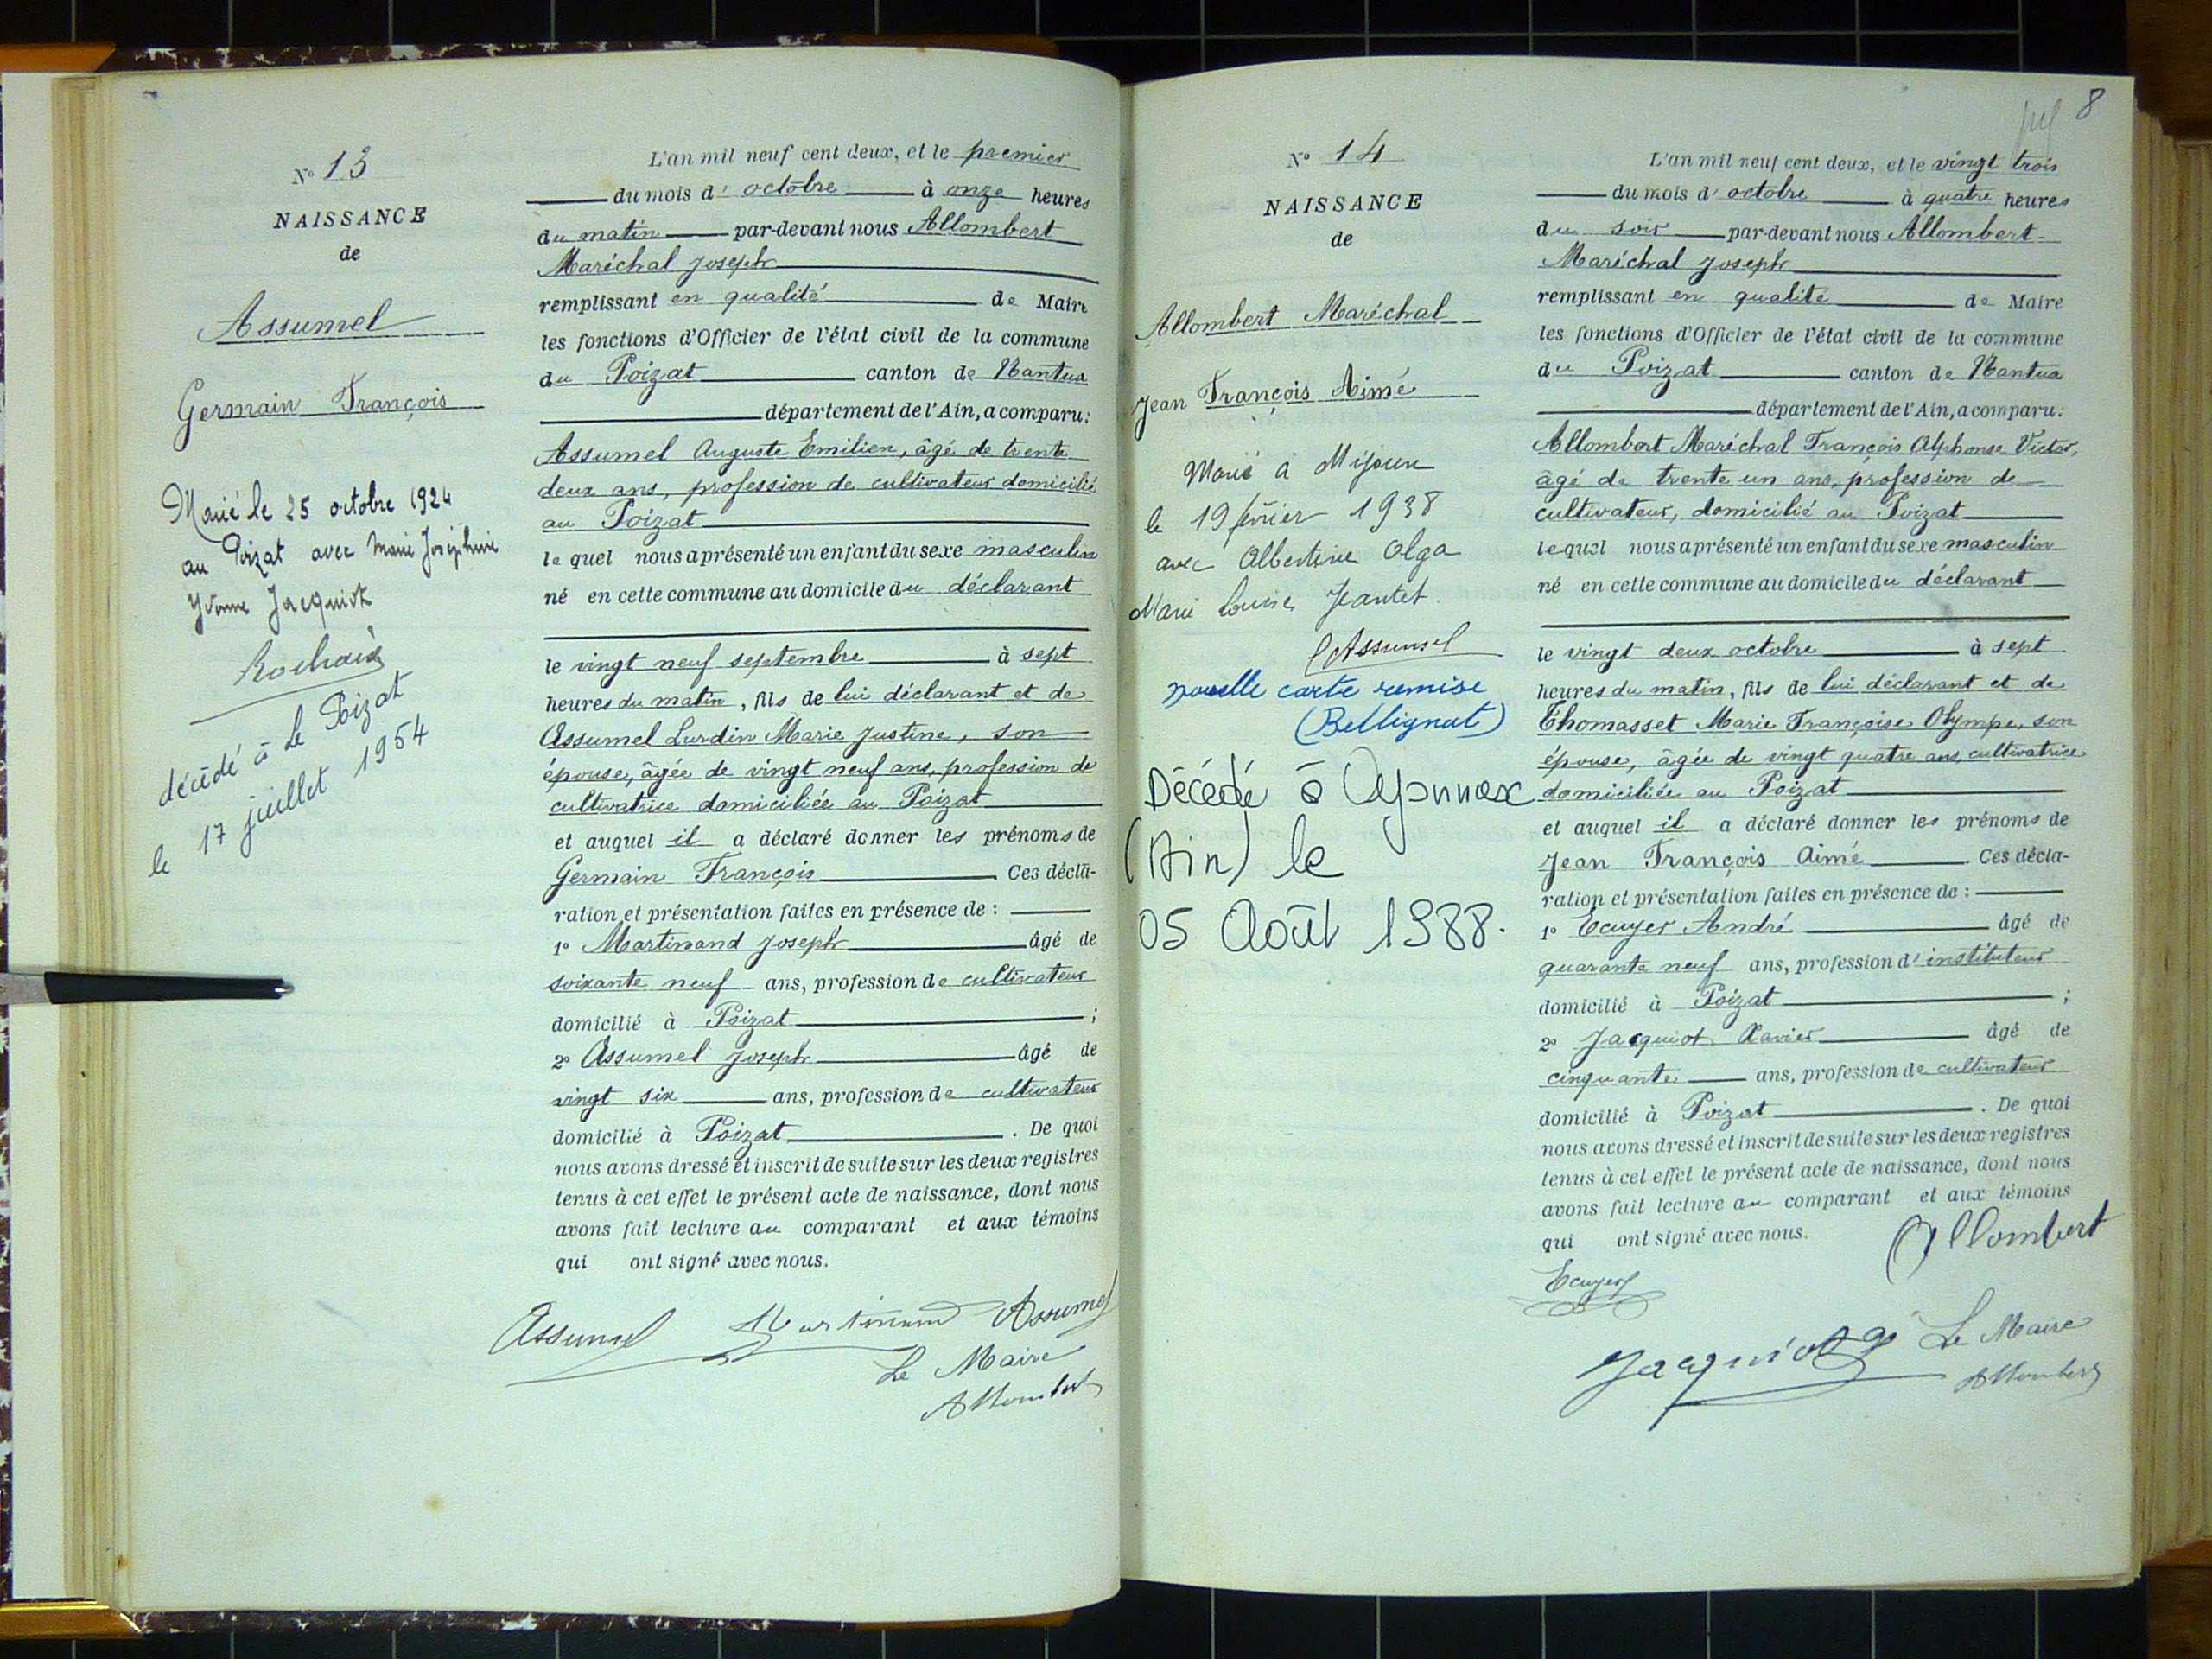 N° 13
NAISSANCE
de
Assumel
Germain François
Marié le 25 octobre 1924
au Poizat avec Marie Joséphine
Yvonne Jacquiot
décédé à Le Poizat
le 17 juillet 1954
L'an mil neuf cent deux, et le premier
du mois d' octobre à onze heures
du matin par-devant nous Allombert
Maréchal Joseph
remplissant en qualité de Maire
les fonctions d'Officier de l'état civil de la commune
du Poizat canton de Nantua
département de l'Ain, a comparu:
Assumel Auguste Emilien, âgé de trente
deux ans, profession de cultivateur domicilié
au Poizat
le quel nous a présenté un enfant du sexe masculin
né en cette commune au domicile du déclarant
le vingt neuf septembre à sept
heures du matin, fils de lui déclarant et de
Assumel Lurdin Marie Justine, son
épouse, âgée de vingt neuf ans, profession de
cultivatrice domiciliée au Poizat
et auquel il a déclaré donner les prénoms de
Germain François Ces décla-
ration et présentation faites en présence de :
1° Martinand Joseph âgé de
soixante neuf ans, profession de cultivateur
domicilié à Poizat ;
2° Assumel Joseph âgé de
vingt six ans, profession de cultivateur
domicilié à Poizat . De quoi
nous avons dressé et inscrit de suite sur les deux registres
tenus à cet effet le présent acte de naissance, dont nous
avons fait lecture au comparant et aux témoins
qui ont signé avec nous.
Assumel Martinand Assumel
Le Maire
Allombert
8
N° 14
NAISSANCE
de
Allombert Maréchal
Jean François Aimé
Marié à Mijoux
le 19 février 1938
avec Albertine Olga
Marie Louise Jeantet
Assumel
nouvelle carte remise
(Bellignat)
Décédé à Oyonnax
(Ain) le
05 Août 1988.
L'an mil neuf cent deux, et le vingt trois
du mois d' octobre à quatre heures
du soir par-devant nous Allombert-
Maréchal Joseph
remplissant en qualité de Maire
les fonctions d'Officier de l'état civil de la commune
du Poizat canton de Nantua
département de l'Ain, a comparu:
Allombert Maréchal François Alphonse Victor,
âgé de trente un ans, profession de
cultivateur, domicilié au Poizat
le quel nous a présenté un enfant du sexe masculin
né en cette commune au domicile du déclarant
le vingt deux octobre à sept
heures du matin, fils de lui déclarant et de
Thomasset Marie Françoise Olympe, son
épouse, âgée de vingt quatre ans, cultivatrice
domiciliée au Poizat
et auquel il a déclaré donner les prénoms de
Jean François Aimé . Ces décla-
ration et présentation faites en présence de :
1° Ecuyer André âgé de
quarante neuf ans, profession d' instituteur
domicilié à Poizat ;
2° Jacquiot Xavier âgé de
cinquante ans, profession de cultivateur
domicilié à Poizat . De quoi
nous avons dressé et inscrit de suite sur les deux registres
tenus à cet effet le présent acte de naissance, dont nous
avons fait lecture au comparant et aux témoins
qui ont signé avec nous.
Allombert
Ecuyer
Jacquiot Le Maire
Allombert